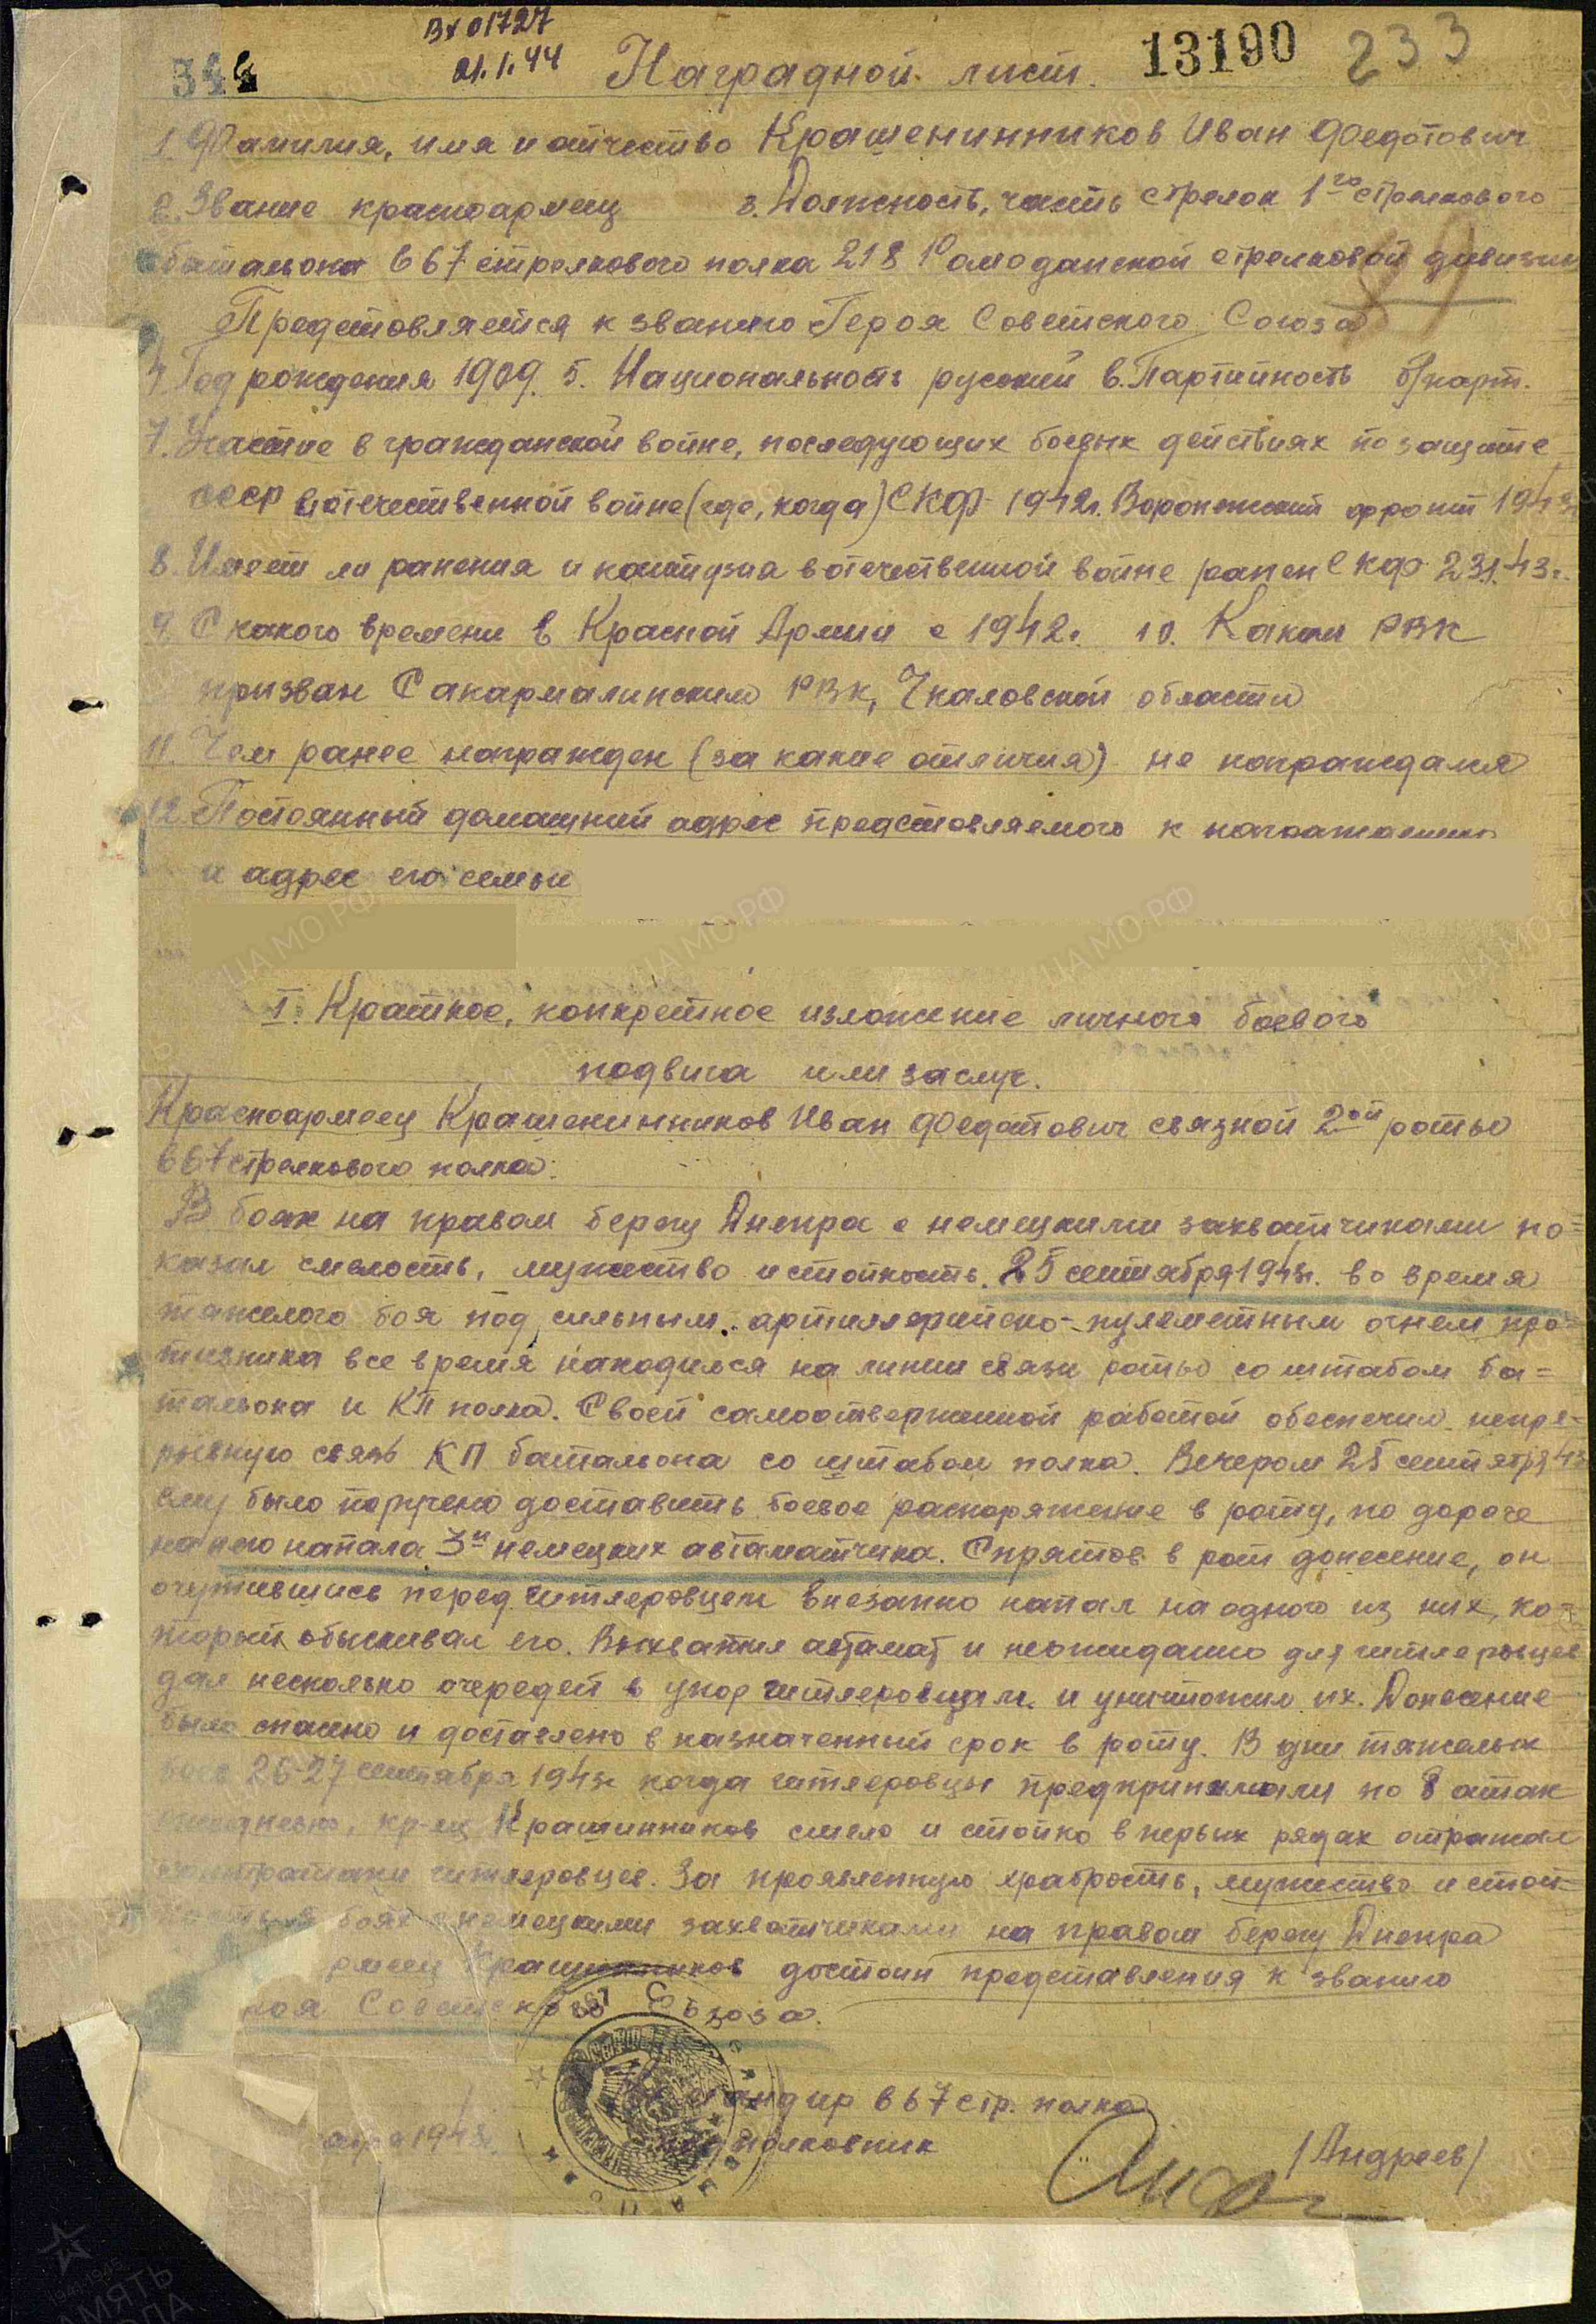 Вх 01727
21.1.44
13190 233
344
Наградной лист.
1. Фамилия, имя и отчество Крашенинников Иван Федотович
2. Звание красноармеец 3. Должность, часть стрелок 1го стрелкового
батальона 667 стрелкового полка 218 Ромоданской стрелковой дивизии
Представляется к званию Героя Советского Союза
4. Год рождения 1909. 5. Национальность русский 6. Партийность б/парт.
7. Участие в гражданской войне, последующих боевых действиях по защите
СССР и отечественной войне (где, когда) СКФ - 1942г. Воронежский фронт 1943
8. Имеет ли ранения и контузия в отечественной войне ранен СКФ 23.1.43г.
9. С какого времени в Красной Армии с 1942г. 10. Каким РВК
призван Сакармалинским РВК, Чкаловской области
11. Чем ранее награжден (за какие отличия) не награждался
12. Постоянный домашний адрес представляемого к награждению
и адрес его семьи
I. Краткое, конкретное изложение личного боевого
подвига или заслуг.
Красноармеец Крашенинников Иван Федотович связной 2ой роты
667 стрелкового полка.
В боях на правом берегу Днепра с немецкими захватчиками по=
казал смелость, мужество и стойкость. 25 сентября 1943г. во время
тяжелого боя под сильным артиллерийско-пулеметным огнем про=
тивника все время находился на линии связи роты со штабом ба=
тальона и КП полка. Своей самоотверженной работой обеспечил непре=
рывную связь КП батальона со штабом полка. Вечером 25 сентября 43
ему было поручено доставить боевое распоряжение в роту, по дороге
на него напала 3и немецких автаматчика. Спрятав в рот донесение, он
очутившись перед гитлеровцем внезапно напал на одного из них, ко=
торый обыскивал его. Выхватил автамат и неожиданно для гитлеровцев
дал несколько очередей в упор гитлеровцам и уничтожил их. Донесение
было спасено и доставлено в назначенный срок в роту. В дни тяжелых
боев 26-27 сентября 1943г когда гитлеровцы предпринимали по 8 атак
ежедневно, кр-ец Крашинников смело и стойко в первых рядах отражал
контратаки гитлеровцев. За проявленную храбрость, мужество и стой=
кость в боях с немецкими захватчиками на правом берегу Днепра
рмеец Крашинников достоин представления к званию
роя Советского Союза.
667
андир 667 стр. полка
подполковник /Андреев/
1943г.
ЦАМО.РФ
ПАМЯТЬ
1941-1945